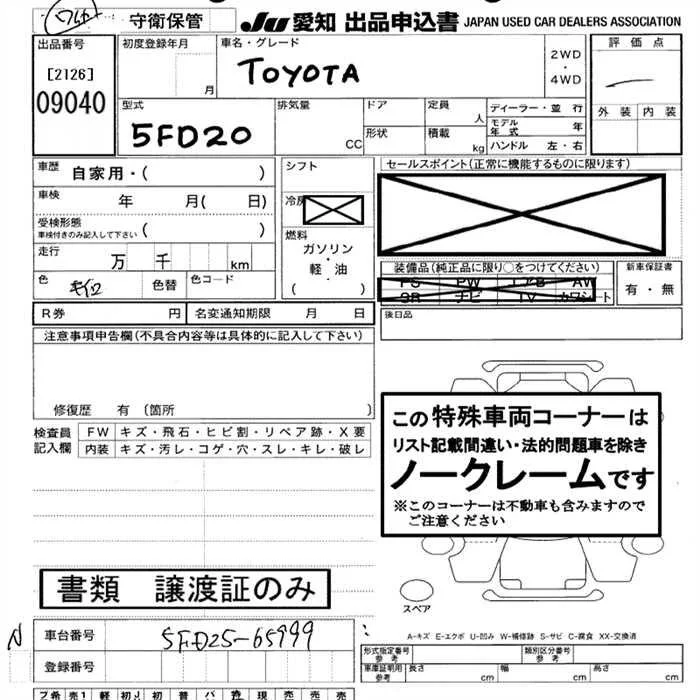 守衛保管 JU 愛知 出品申込書 JAPAN USED CAR DEALERS ASSOCIATION
出品番号 初度登録年月 車名・グレード 評価点
[2126] 月 TOYOTA 2WD・4WD
09040 外装 内装
型式 排気量 ドア 定員 人 ディーラー・並行
5FD20 CC 形状 積載 kg モデル年式 年
ハンドル 左・右
車歴 自家用・( ) シフト セールスポイント(正常に機能するものに限ります)
車検 年 月( 日) 冷房
受検形態 ( )
車検付きのみ記入して下さい
燃料
走行 万 千 km ガソリン・軽・油
( )
色 キイロ 色替 色コード
装備品(純正品に限り○をつけてください) 新車保証書
PS PW エアB AW 有・無
SR ナビ TV カワシート
R券 円 名変通知期限 月 日 後日品
注意事項申告欄(不具合内容等は具体的に記入して下さい)
修復歴 有 (箇所 )
検査員記入欄 FW キズ・飛石・ヒビ割・リペア跡・X要
内装 キズ・汚レ・コゲ・穴・スレ・キレ・破レ
この特殊車両コーナーは
リスト記載間違い・法的問題車を除き
ノークレームです
※このコーナーは不動車も含みますので
ご注意ください
書類 譲渡証のみ
スペア
N 車台番号 5FD25-65999
A-キズ E-エクボ U-凹み W-補修跡 S-サビ C-腐食 XX-交換済
登録番号
形式指定番号 参考 類別区分番号 参考
車庫証明用 参考 長さ cm 幅 cm 高さ cm